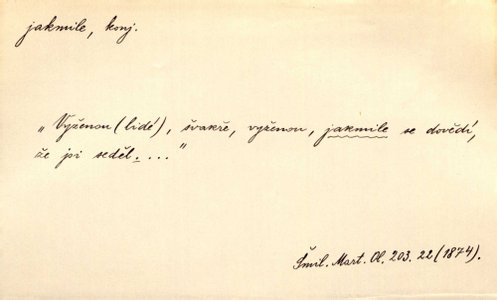 jakmile, konj.
„Vyženou (lidé), švakře, vyženou, jakmile se dovědí,
že jsi seděl. ...”
Šmil. Mart. Ol. 203. 22 (1874).